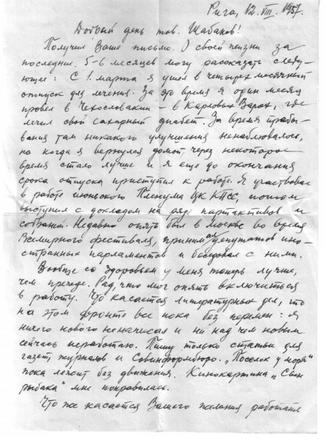 Рига, 12. VIII. 1957.
Добрый день тов. Шабанов!
Получил Ваше письмо. О своей жизни за
последние 5-6 месяцев могу рассказать следу-
ющее: С 1. марта я ушел в четырех месячный
отпуск для лечения. За это время я один месяц
провел в Чехословакии – в Карловых Варах, где
лечил свой сахарный диабет. За время пребы-
вания там никакого улучшения ненаблюдалось,
но когда я вернулся домой через некоторое
время стало лучше и я еще до окончания
срока отпуска приступил к работе. Я участвовал
в работе июньского Пленума ЦК КПСС, потом
выступил с докладом на ряд партактивов и
собраний. Недавно опять был в Москве во время
Всемирного фестиваля, принимал депутатов ино-
странных парламентов и беседовал с ними.
Вообще со здоровьем у меня теперь лучше,
чем прежде. Рад, что мог опять включиться
в работу. Что касается литературных дел, то
на этом фронте все пока без перемен: я
ничего нового ненаписал и ни над чем новым
сейчас неработаю. Пишу только статьи для
газет, журналов и Совинформбюро. „Поселок у моря"
пока лежит без движения. Кинокартина „Сын
рыбака" мне понравилась.
Что же касается Вашего желания работать